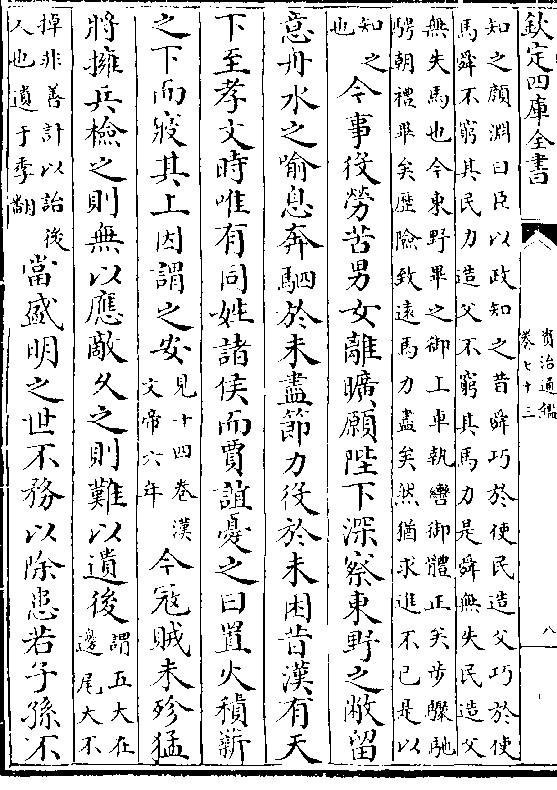 欽定四庫全書
資治通鑑
卷七十三
八
知之顔淵曰臣以政知之昔舜巧於使民造父巧於使
馬舜不窮其民力造父不窮其馬力是舜無失民造父
無失馬也今東野畢之御工車執轡御體正矣步驟馳
騁朝禮畢矣歴險致遠馬力盡矣然猶求進不已是以
知之也今事役勞苦男女離曠願陛下深察東野之敝留
意舟水之喻息奔駟於未盡節力役於未困昔漢有天
下至孝文時唯有同姓諸侯而賈誼憂之曰置火積薪
之下而寢其上因謂之安見十四卷漢文帝六年今寇賊未殄猛
將擁兵檢之則無以應敵久之則難以遺後謂五大在邊尾大不
掉非善計以詒後人也遺于季翻當盛明之世不務以除患若子孫不